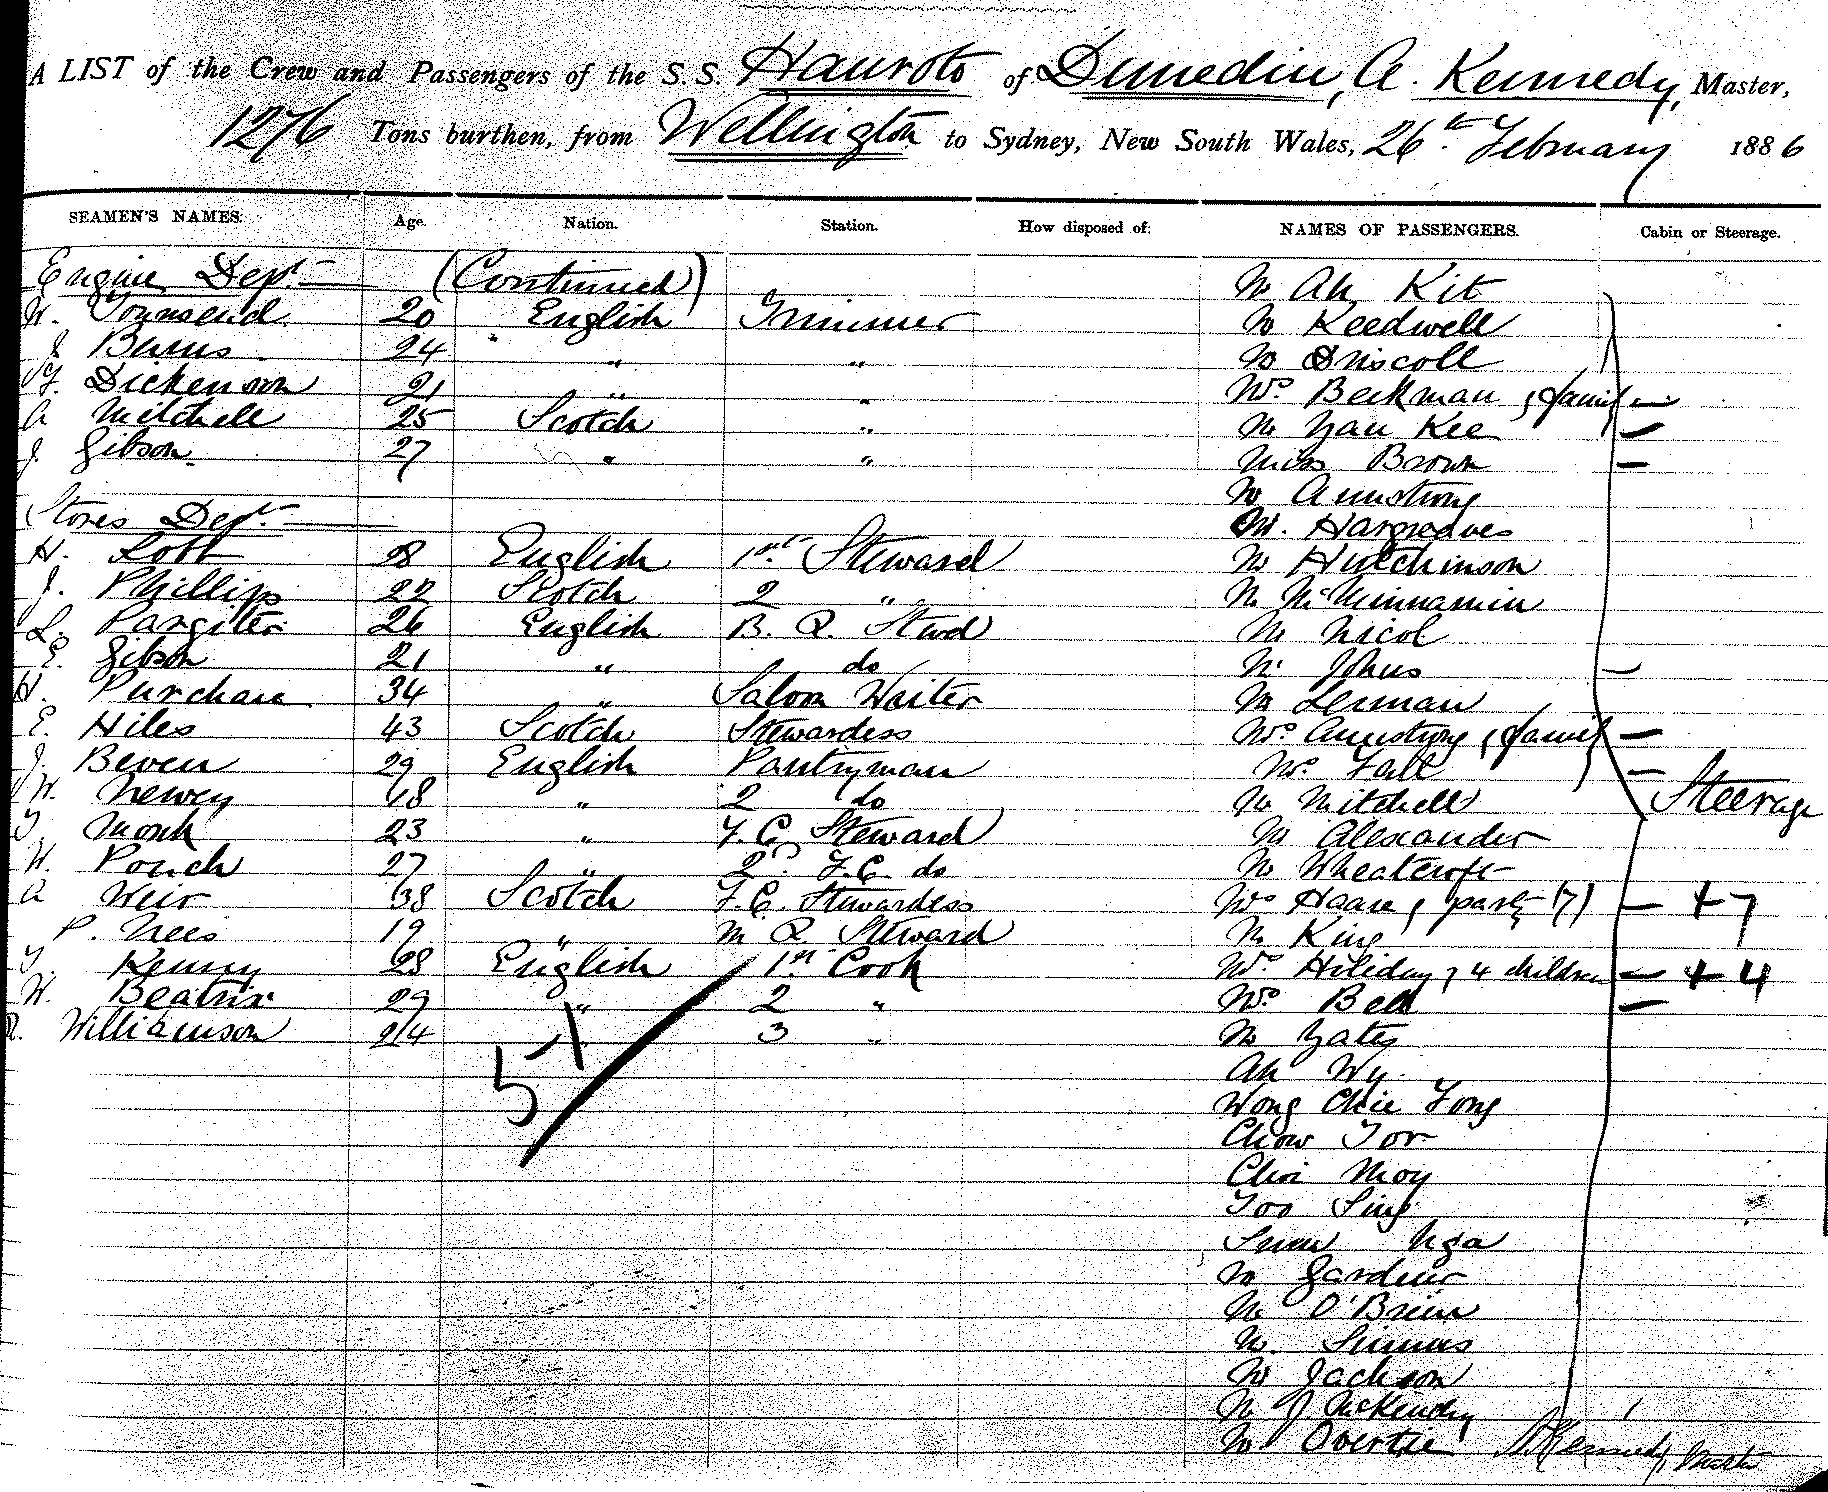 A LIST of the Crew and Passengers of the S.S. Hauroto of Dunedin, A. Kennedy, Master,
1276 Tons burthen, from Wellington to Sydney, New South Wales, 26th February 1886
SEAMEN'S NAMES. Age. Nation. Station. How disposed of: NAMES OF PASSENGERS. Cabin or Steerage.
Engine Dept (Continued) Mr Ah Kit
W. Townsend 20 English Trimmer Mr Keedwell
J Burns 24 " " " Mr Driscoll
Dickenson 21 " " Mrs Beekman & family —
A Mitchell 25 Scotch " Mr Yau Kee —
J. Gibson 27 " " Miss Brown —
Mr Armstrong
Stores Dept. Mr. Hargreaves
H. Lott 28 English 1st Steward Mr Hutchinson
J. Phillips 22 Scotch 2 " Mr McMinnamin
L. Pargiter 26 English B. R. Stwd Mr Nicol
E. Gibson 21 " do Mr Johns —
H. Purchase 34 " Saloon Waiter Mr Lerman
E. Hiles 43 Scotch Stewardess Mrs Armstrong & family —
J. Beven 29 English Pantryman Mrs Fall —
W. Newey 18 " 2 do Mr Mitchell Steerage
T. Monk 23 " F. C. Steward Mr Alexander
W. Pouch 27 " 2nd F. C. do Mr Wheatcroft
A Weir 38 Scotch F. C. Stewardess Mrs Haare & party (7) — + 7
P. Nees 19 " M R Steward Mr King
T. Kenny 28 English 1st Cook Mrs Hiliday & 4 children — + 4
W. Beatrix 29 " 2 " Mrs Bell —
R. Williamson 24 " 3 " Mr Yates
Ah Wy
51 Wong Chie Fong
Chow Tor
Choi Moy
Too Sing
Nga
Mr Gardner
Mr O'Brien
Mr. Simms
Mr Jackson
Mr J McKendry
Mr Overtie A Kennedy, Master